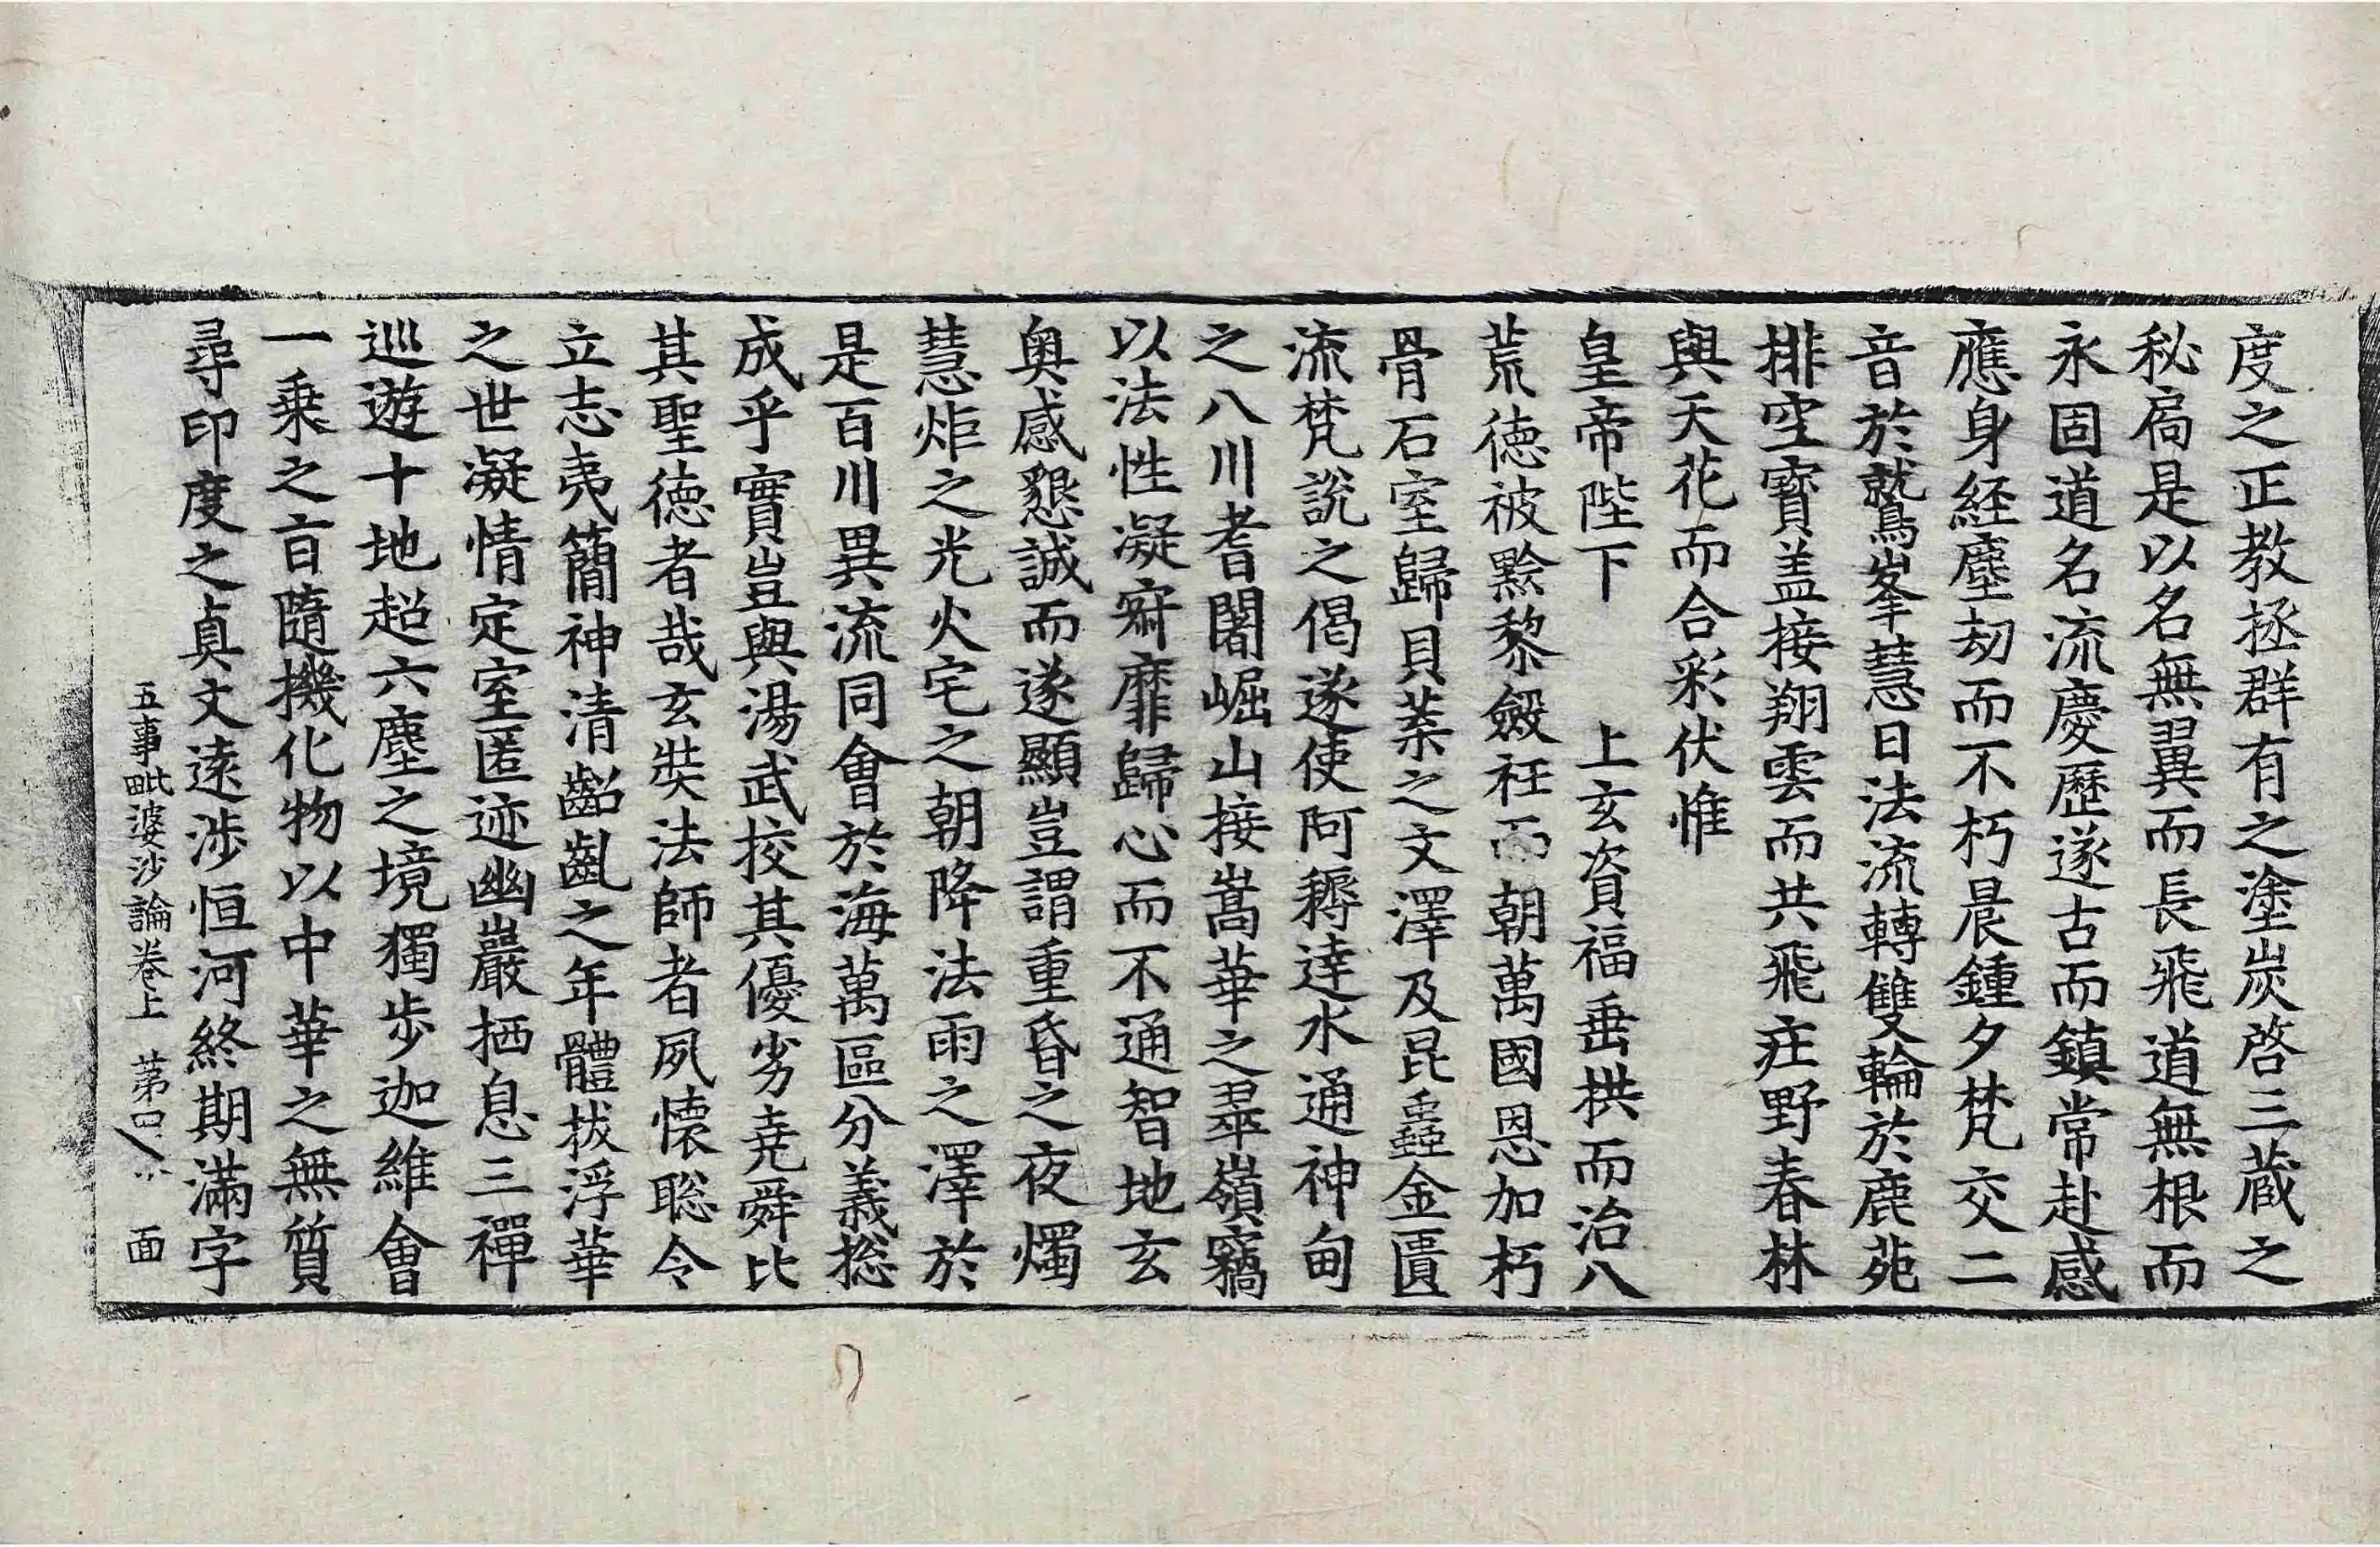 度之正教拯群有之塗炭啓三蔵之
秘扃是以名無翼而長飛道無根而
永固道名流慶歷遂古而鎮常赴感
應身経塵劫而不朽晨鍾夕梵交二
音於鷲峯慧日法流轉雙輪於鹿苑
排空寶盖接翔雲而共飛庄野春林
與天花而合彩伏惟
皇帝陛下 上玄資福垂拱而治八
荒徳被黔黎斂衽而朝萬國恩加朽
骨石室歸貝葉之文澤及昆蟲金匱
流梵說之偈遂使阿耨達水通神甸
之八川耆闍崛山接嵩華之翠嶺竊
以法性凝寂靡歸心而不通智地玄
奥感懇誠而遂顯豈謂重昏之夜燭
慧炬之光火宅之朝降法雨之澤於
是百川異流同會於海萬區分義捴
成乎實豈與湯武挍其優劣堯舜比
其聖徳者哉玄奘法師者夙懐聡令
立志夷簡神清齠齓之年體拔浮華
之世凝情定室匿迹幽巖栖息三禪
巡遊十地超六塵之境獨歩迦維會
一乗之旨隨機化物以中華之無質
尋印度之真文遠渉恒河終期滿字
五事毗婆沙論巻上 苐四 面